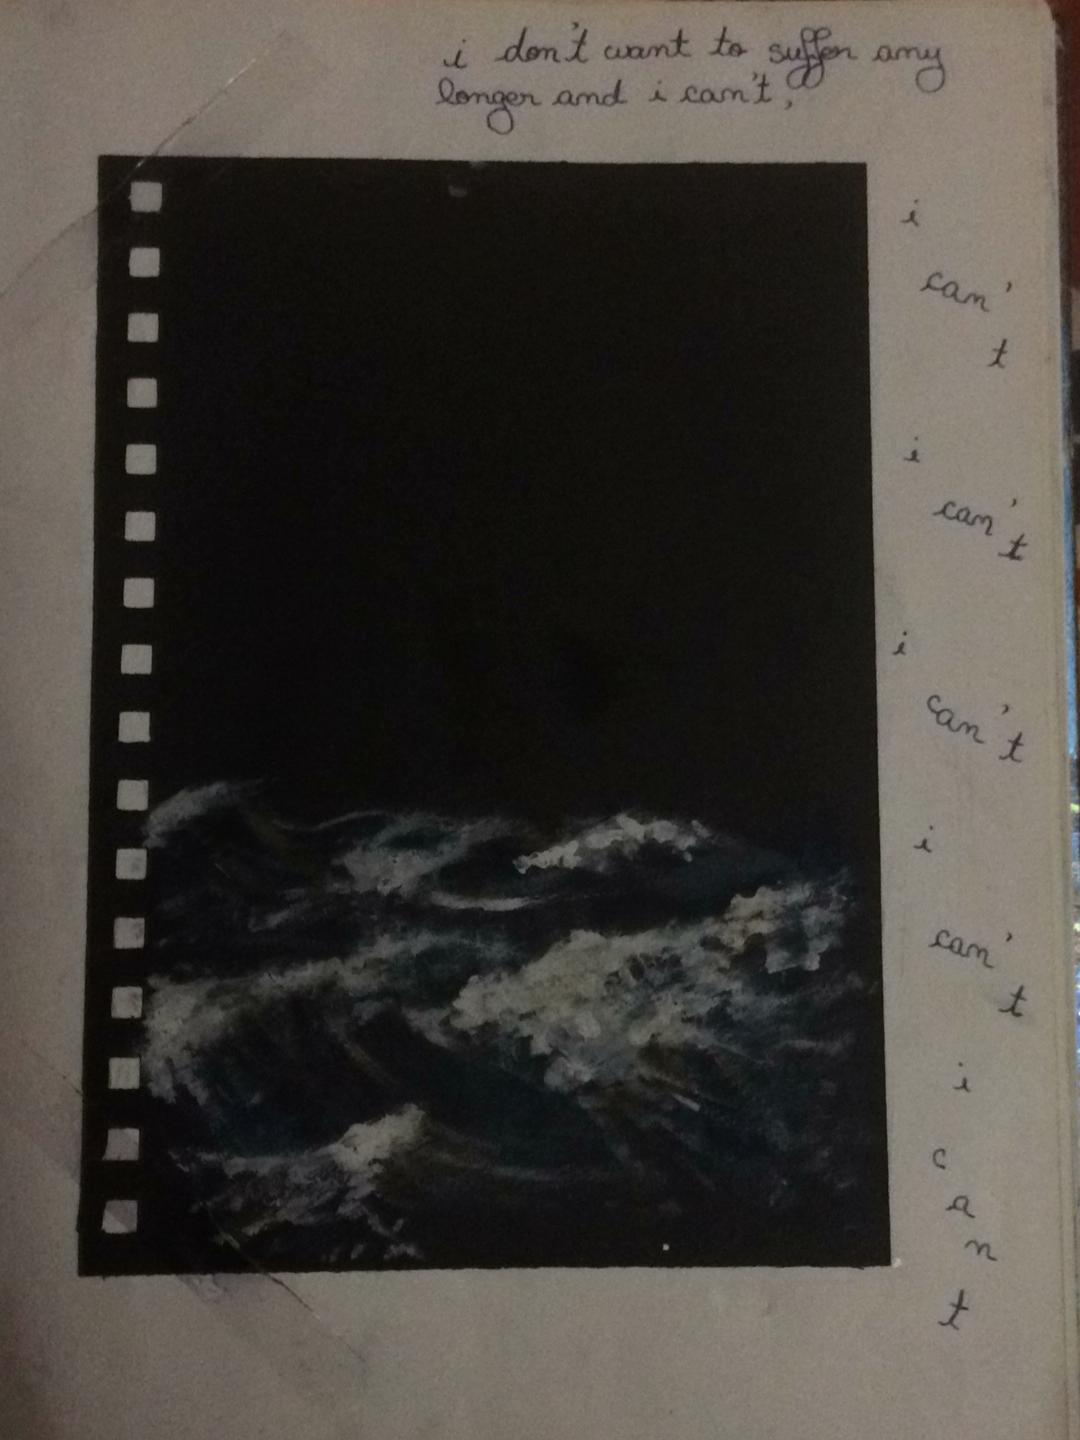 i don't want to suffer any
longer and i can't,
i
can'
t
i
can't
i
can't
i
can'
t
i
c
a
n
t